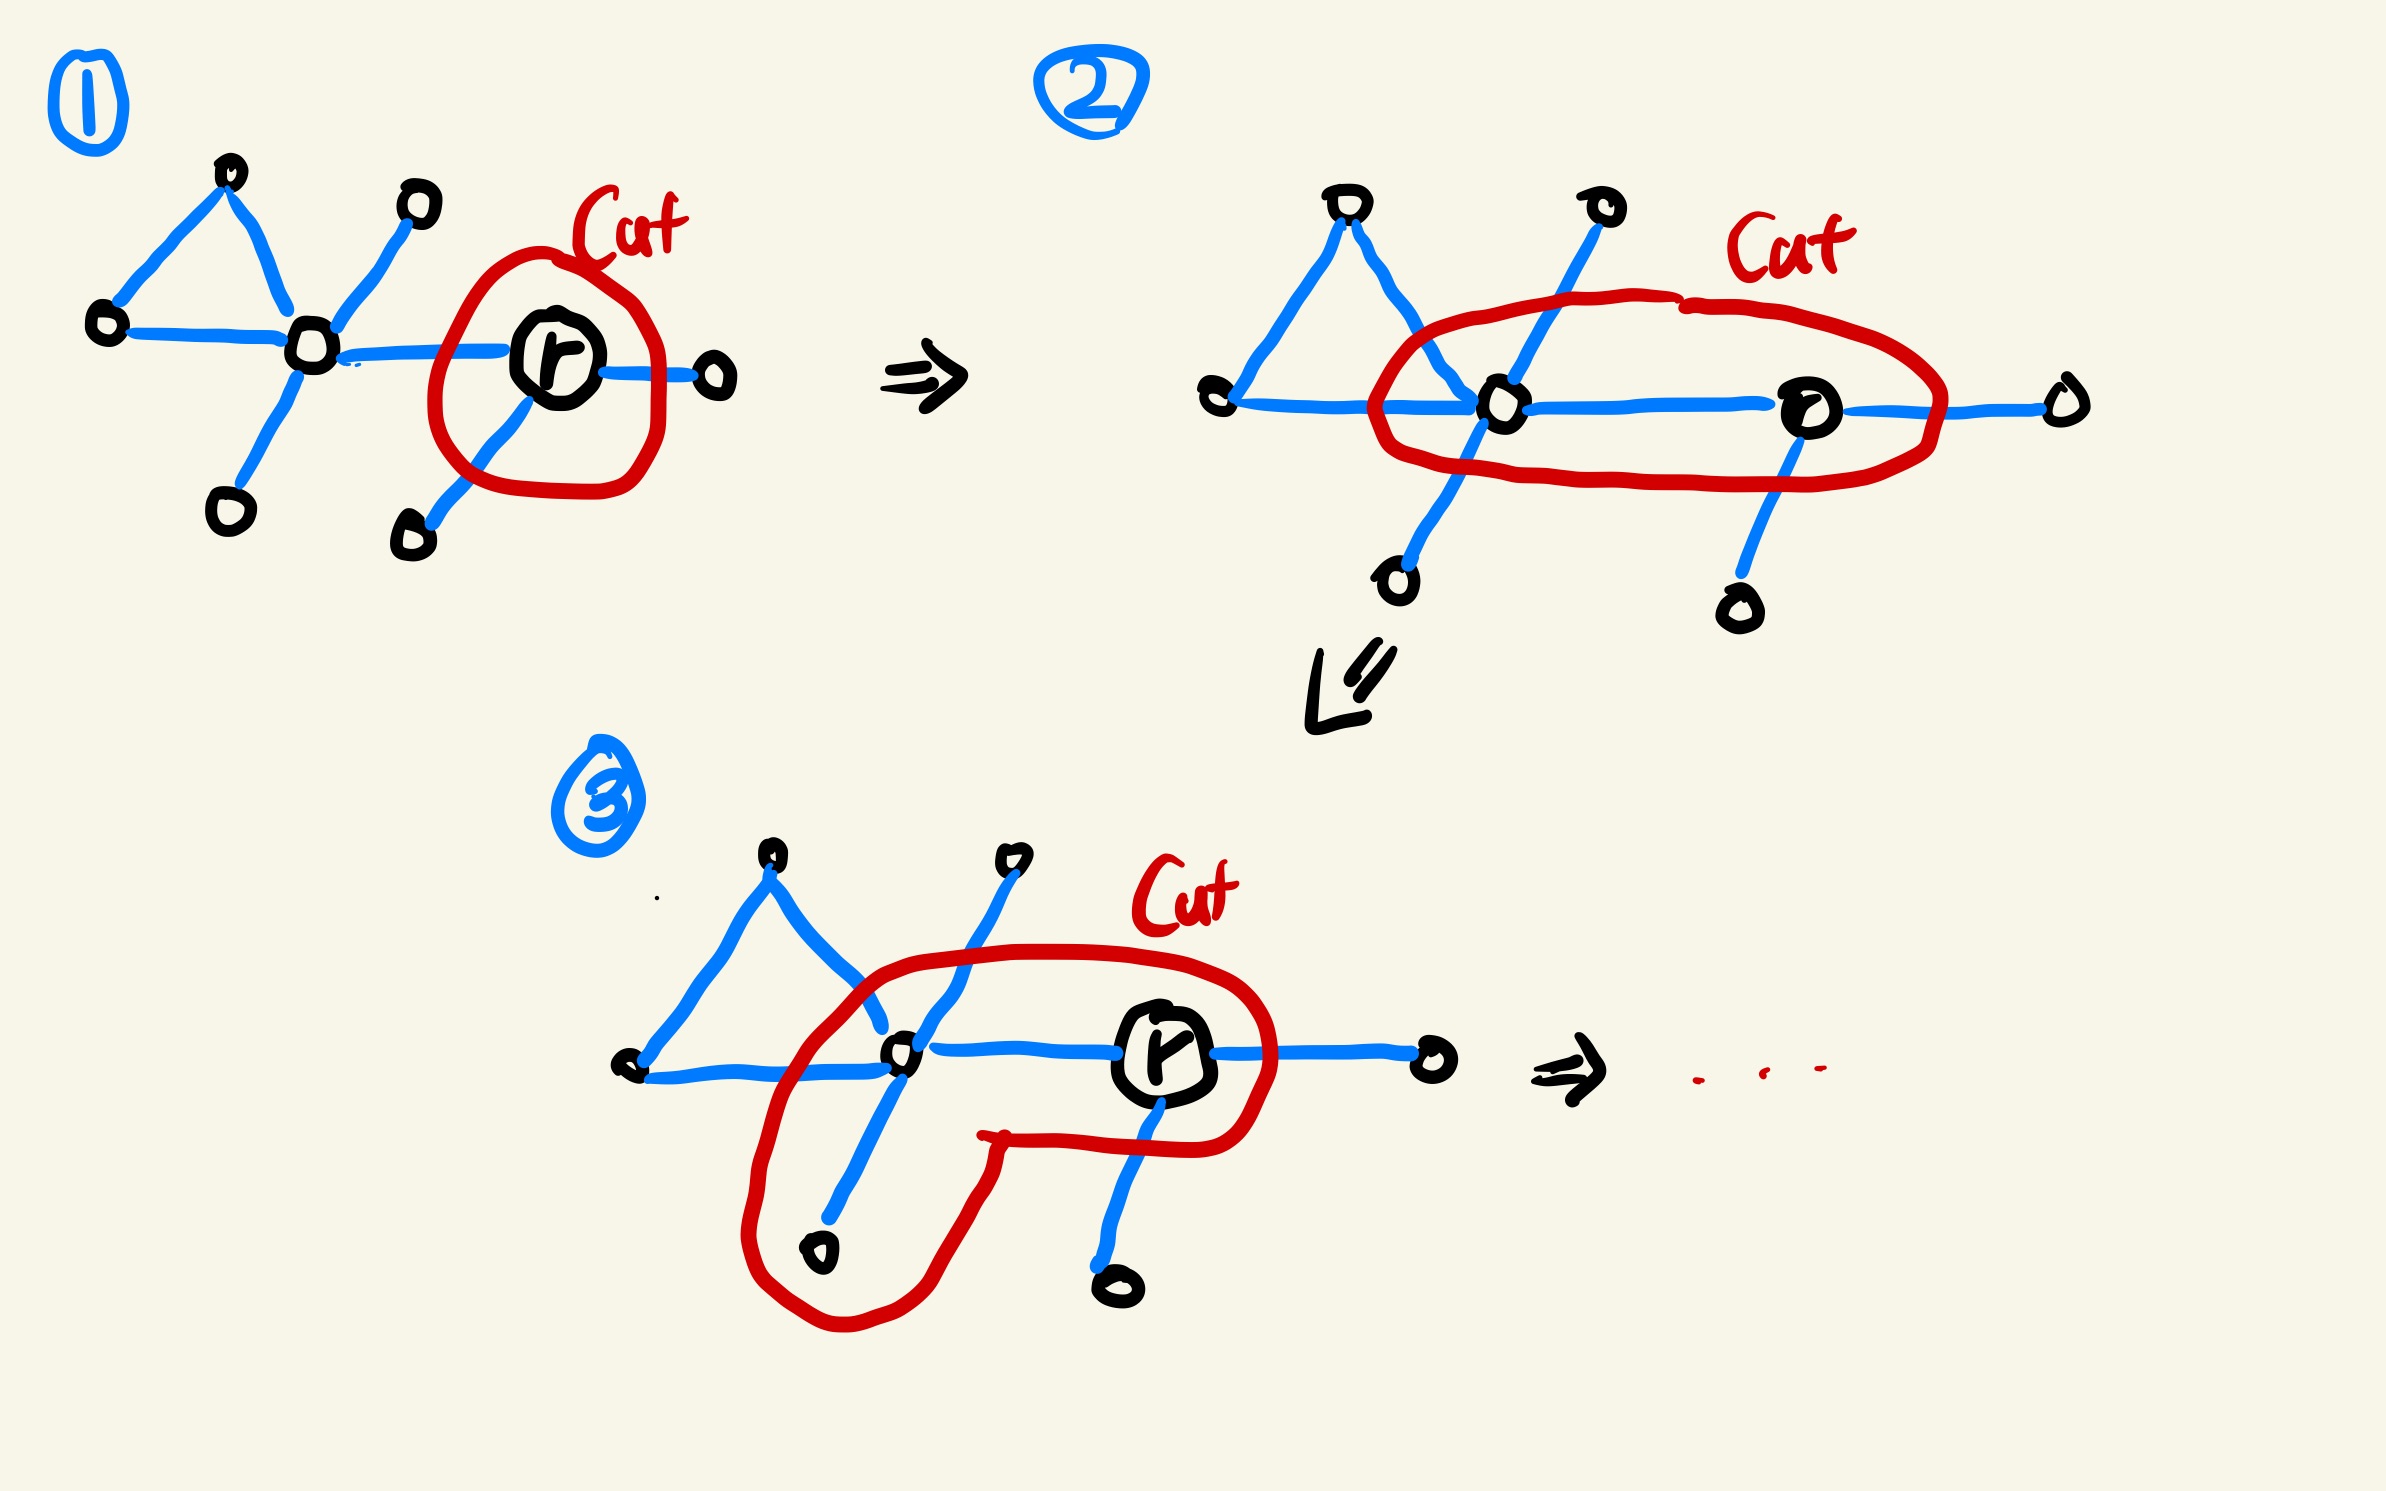 1
2
Cut
r
Cut
r
3
Cut
r